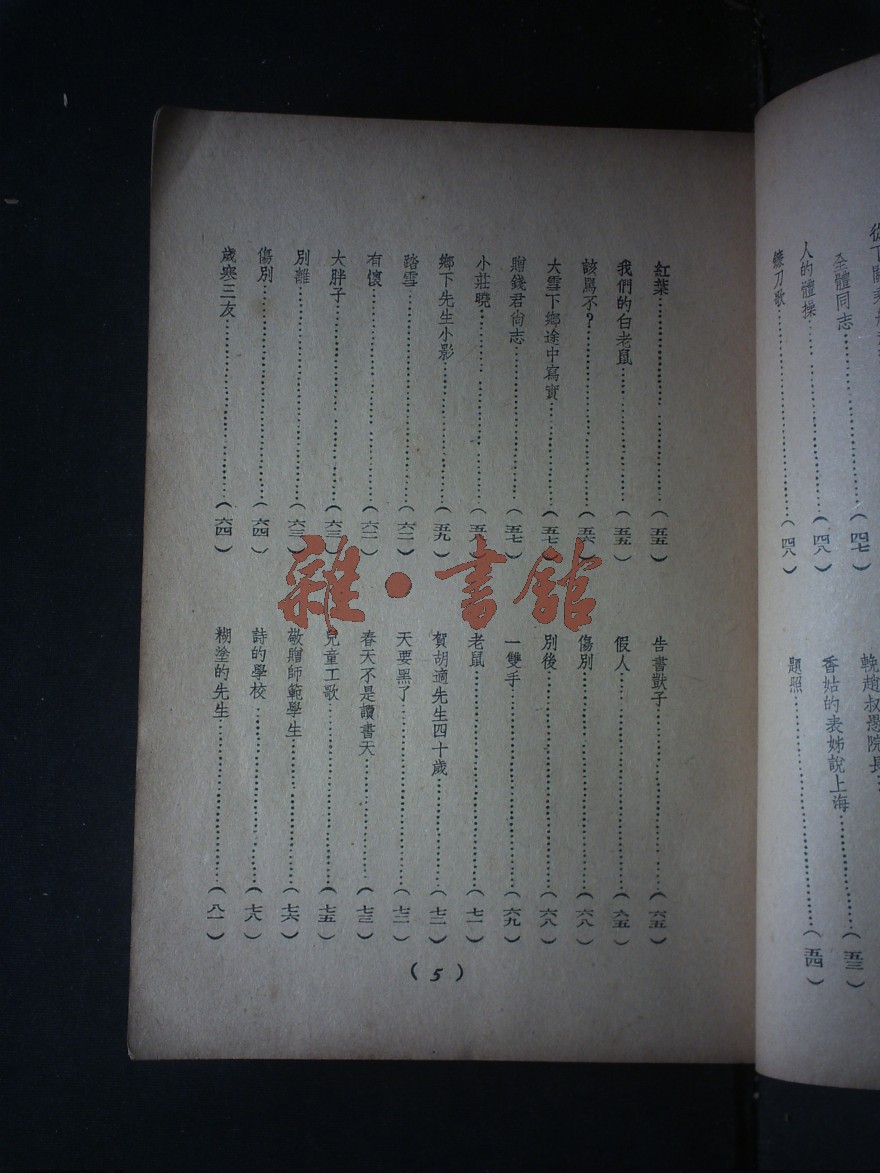 全體同志……(四七)
人的體操……(四八)
鐮刀歌……(四八)
輓趙叔愚院長…
香姑的表姊說上海……(五三)
題照……(五四)
紅葉……(五五)
我們的白老鼠……(五五)
該罵不?……(五六)
大雪下鄉途中寫實……(五七)
贈錢君尙志……(五七)
小莊曉……(五八)
鄉下先生小影……(五九)
踏雪……(六二)
有懷……(六二)
大胖子……(六三)
別離……(六三)
傷別……(六四)
歲寒三友……(六四)
告書獃子……(六五)
假人……(六五)
傷別……(六八)
別後……(六八)
一雙手……(六九)
老鼠……(七一)
賀胡適先生四十歲……(七二)
天要黑了……(七二)
春天不是讀書天……(七三)
兒童工歌……(七五)
敬贈師範學生……(七六)
詩的學校……(七八)
糊塗的先生……(八一)
(5)
雜·書館